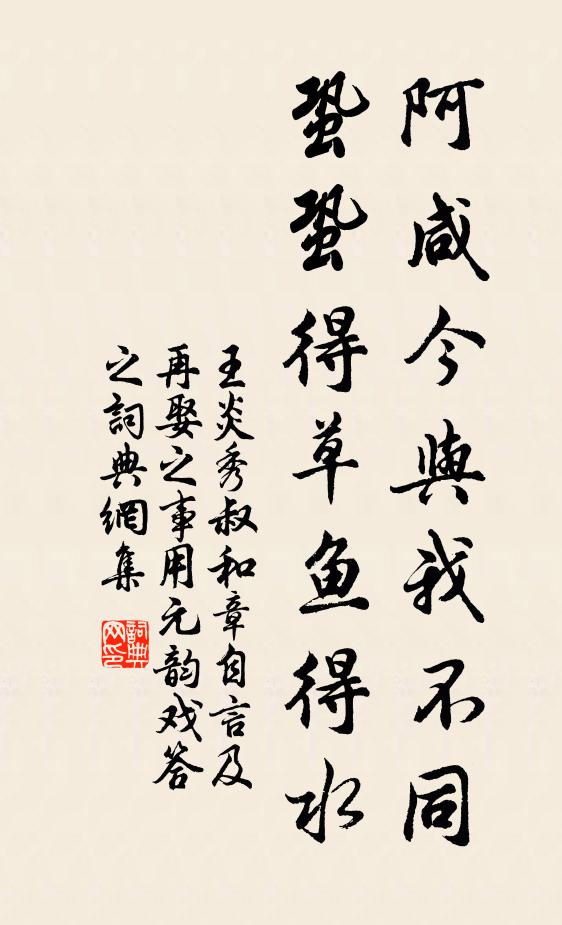 阿咸今與我不同
蛩蛩得草魚得水
王炎秀叔和章自言及
再娶之事用元韵戏答
之詞典網集
詞典
网印